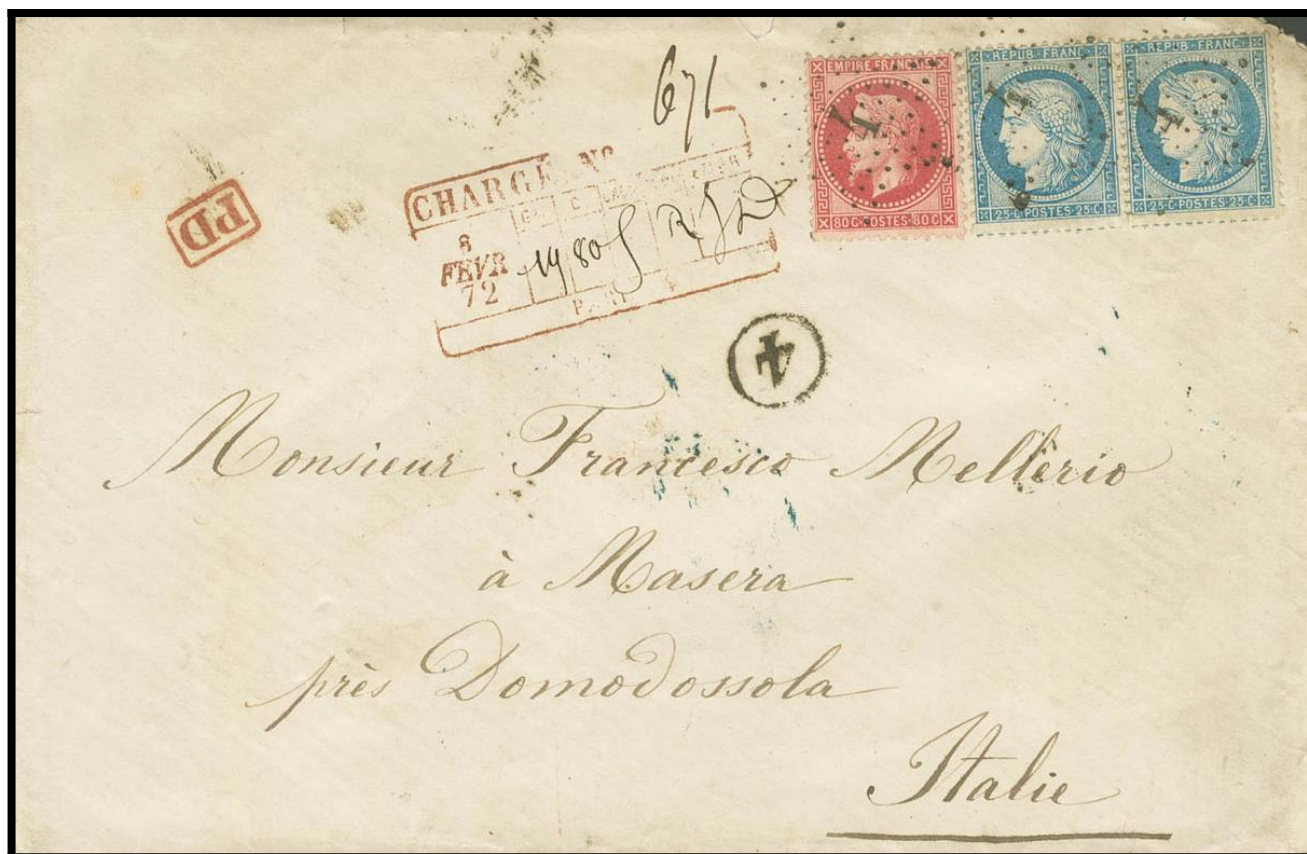 671
EMPIRE FRANÇAIS
80 C · POSTES · 80 C
REPUB · FRANC
25 · C · POSTES · 25 · C
REPUB · FRANC
25 · C · POSTES · 25 · C
4
4
4
PD
CHARGÉ NO
8
FEVR
72
4
Monsieur Francesco Mellerio
à Masera
près Domodossola
Italie